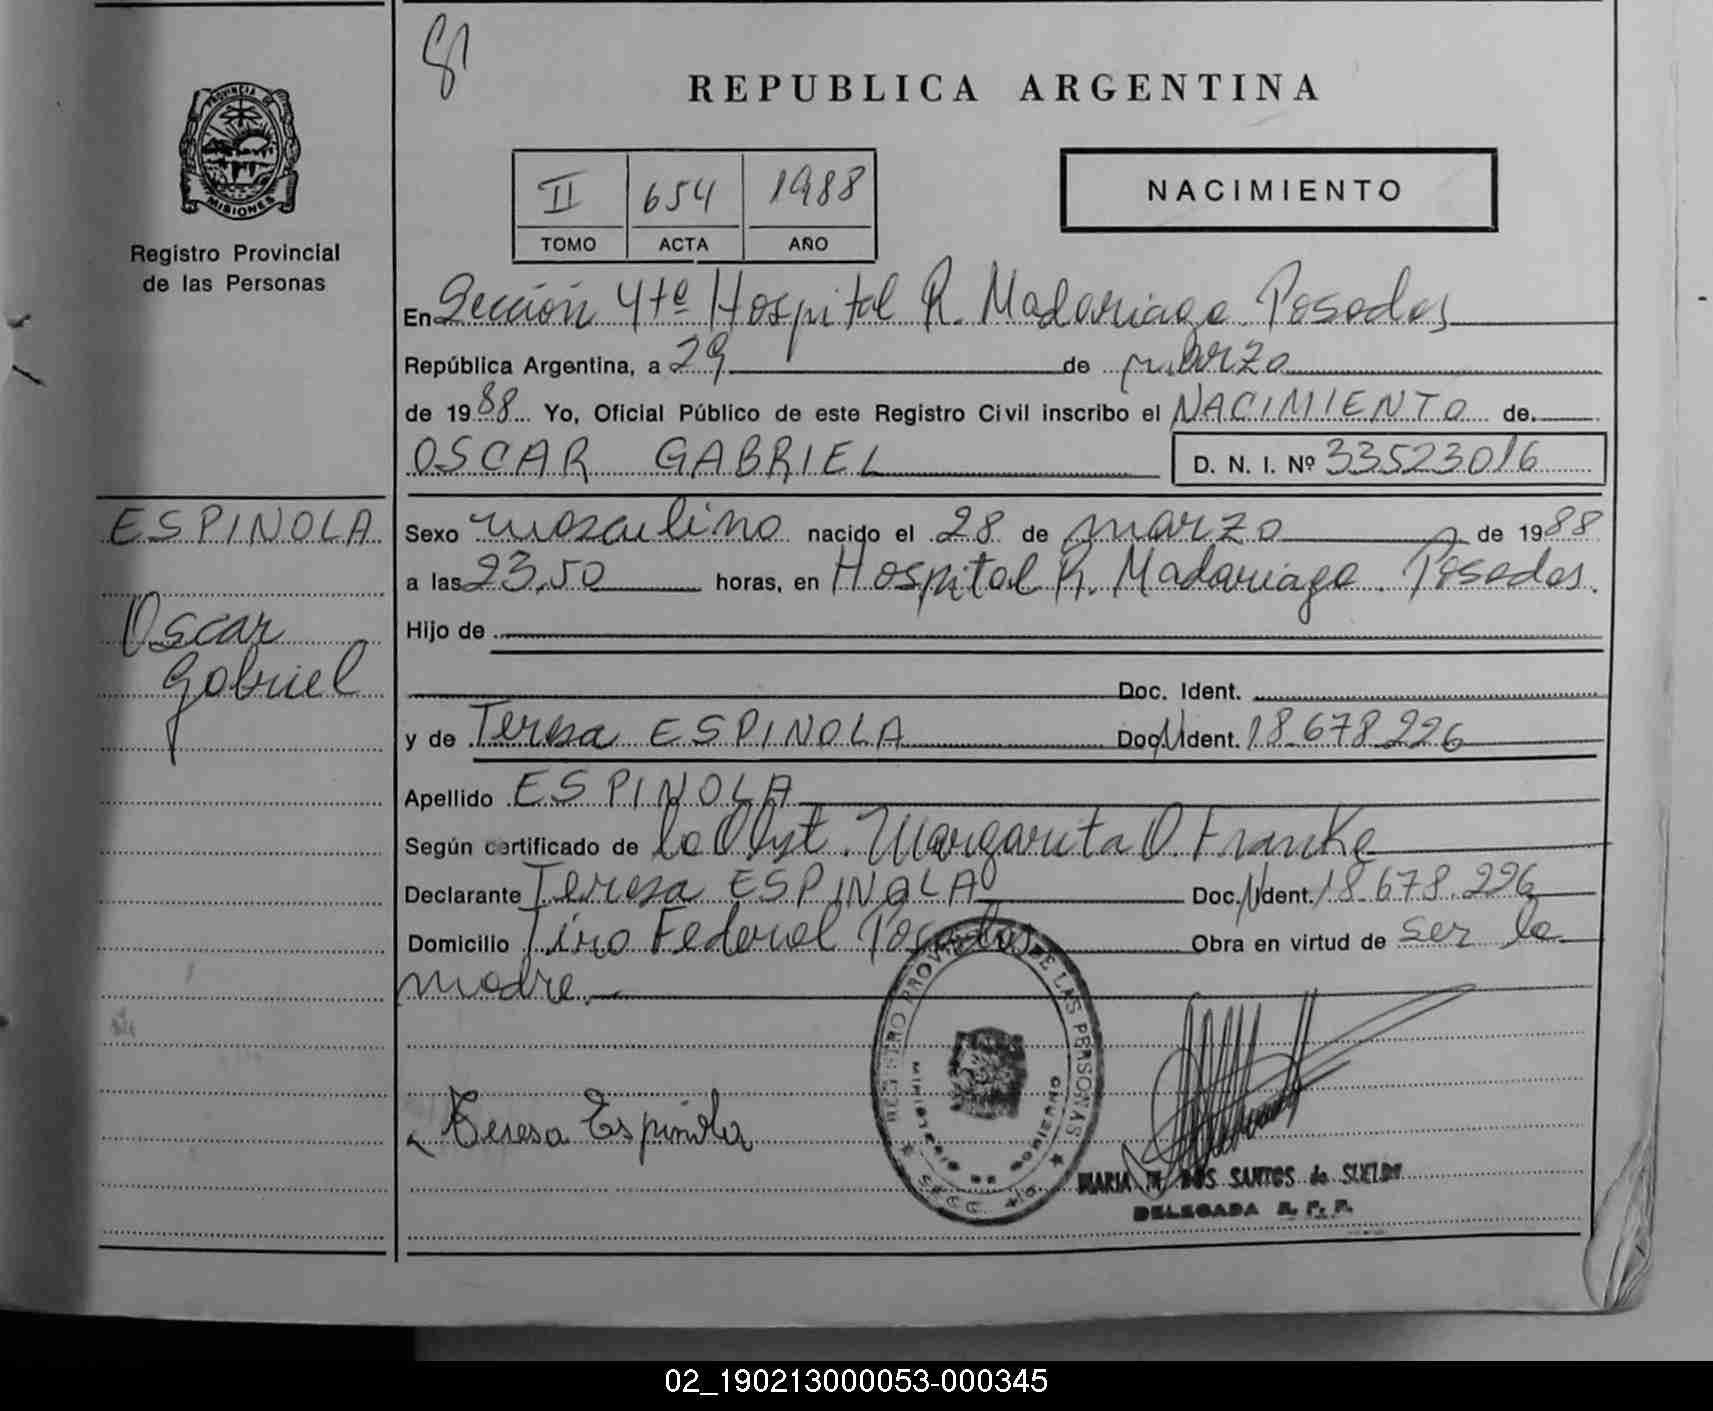 81
REPUBLICA ARGENTINA
PROVINCIA DE
MISIONES
Registro Provincial
de las Personas
II 654 1988
TOMO ACTA AÑO
NACIMIENTO
En Sección 4ta Hospital R. Madariaga Posadas
República Argentina, a 29 de marzo
de 1988 Yo, Oficial Público de este Registro Civil inscribo el NACIMIENTO de
OSCAR GABRIEL D. N. I. Nº 33523016
ESPINOLA
Oscar
Gabriel
Sexo masculino nacido el 28 de marzo de 1988
a las 23,50 horas, en Hospital R. Madariaga Posadas.
Hijo de
Doc. Ident.
y de Teresa ESPINOLA Doc. Ident. 18.678.226
Apellido ESPINOLA
Según certificado de la Obst. Margarita O. Franke
Declarante Teresa ESPINOLA Doc. Ident. 18.678.226
Domicilio Tiro Federal Posadas Obra en virtud de ser la
madre.
REGISTRO PROVINCIAL DE LAS PERSONAS
MINISTERIO DE GOBIERNO
Teresa Espinola
MARIA DOS SANTOS de SUELDO
DELEGADA R. P. P.
02_190213000053-000345